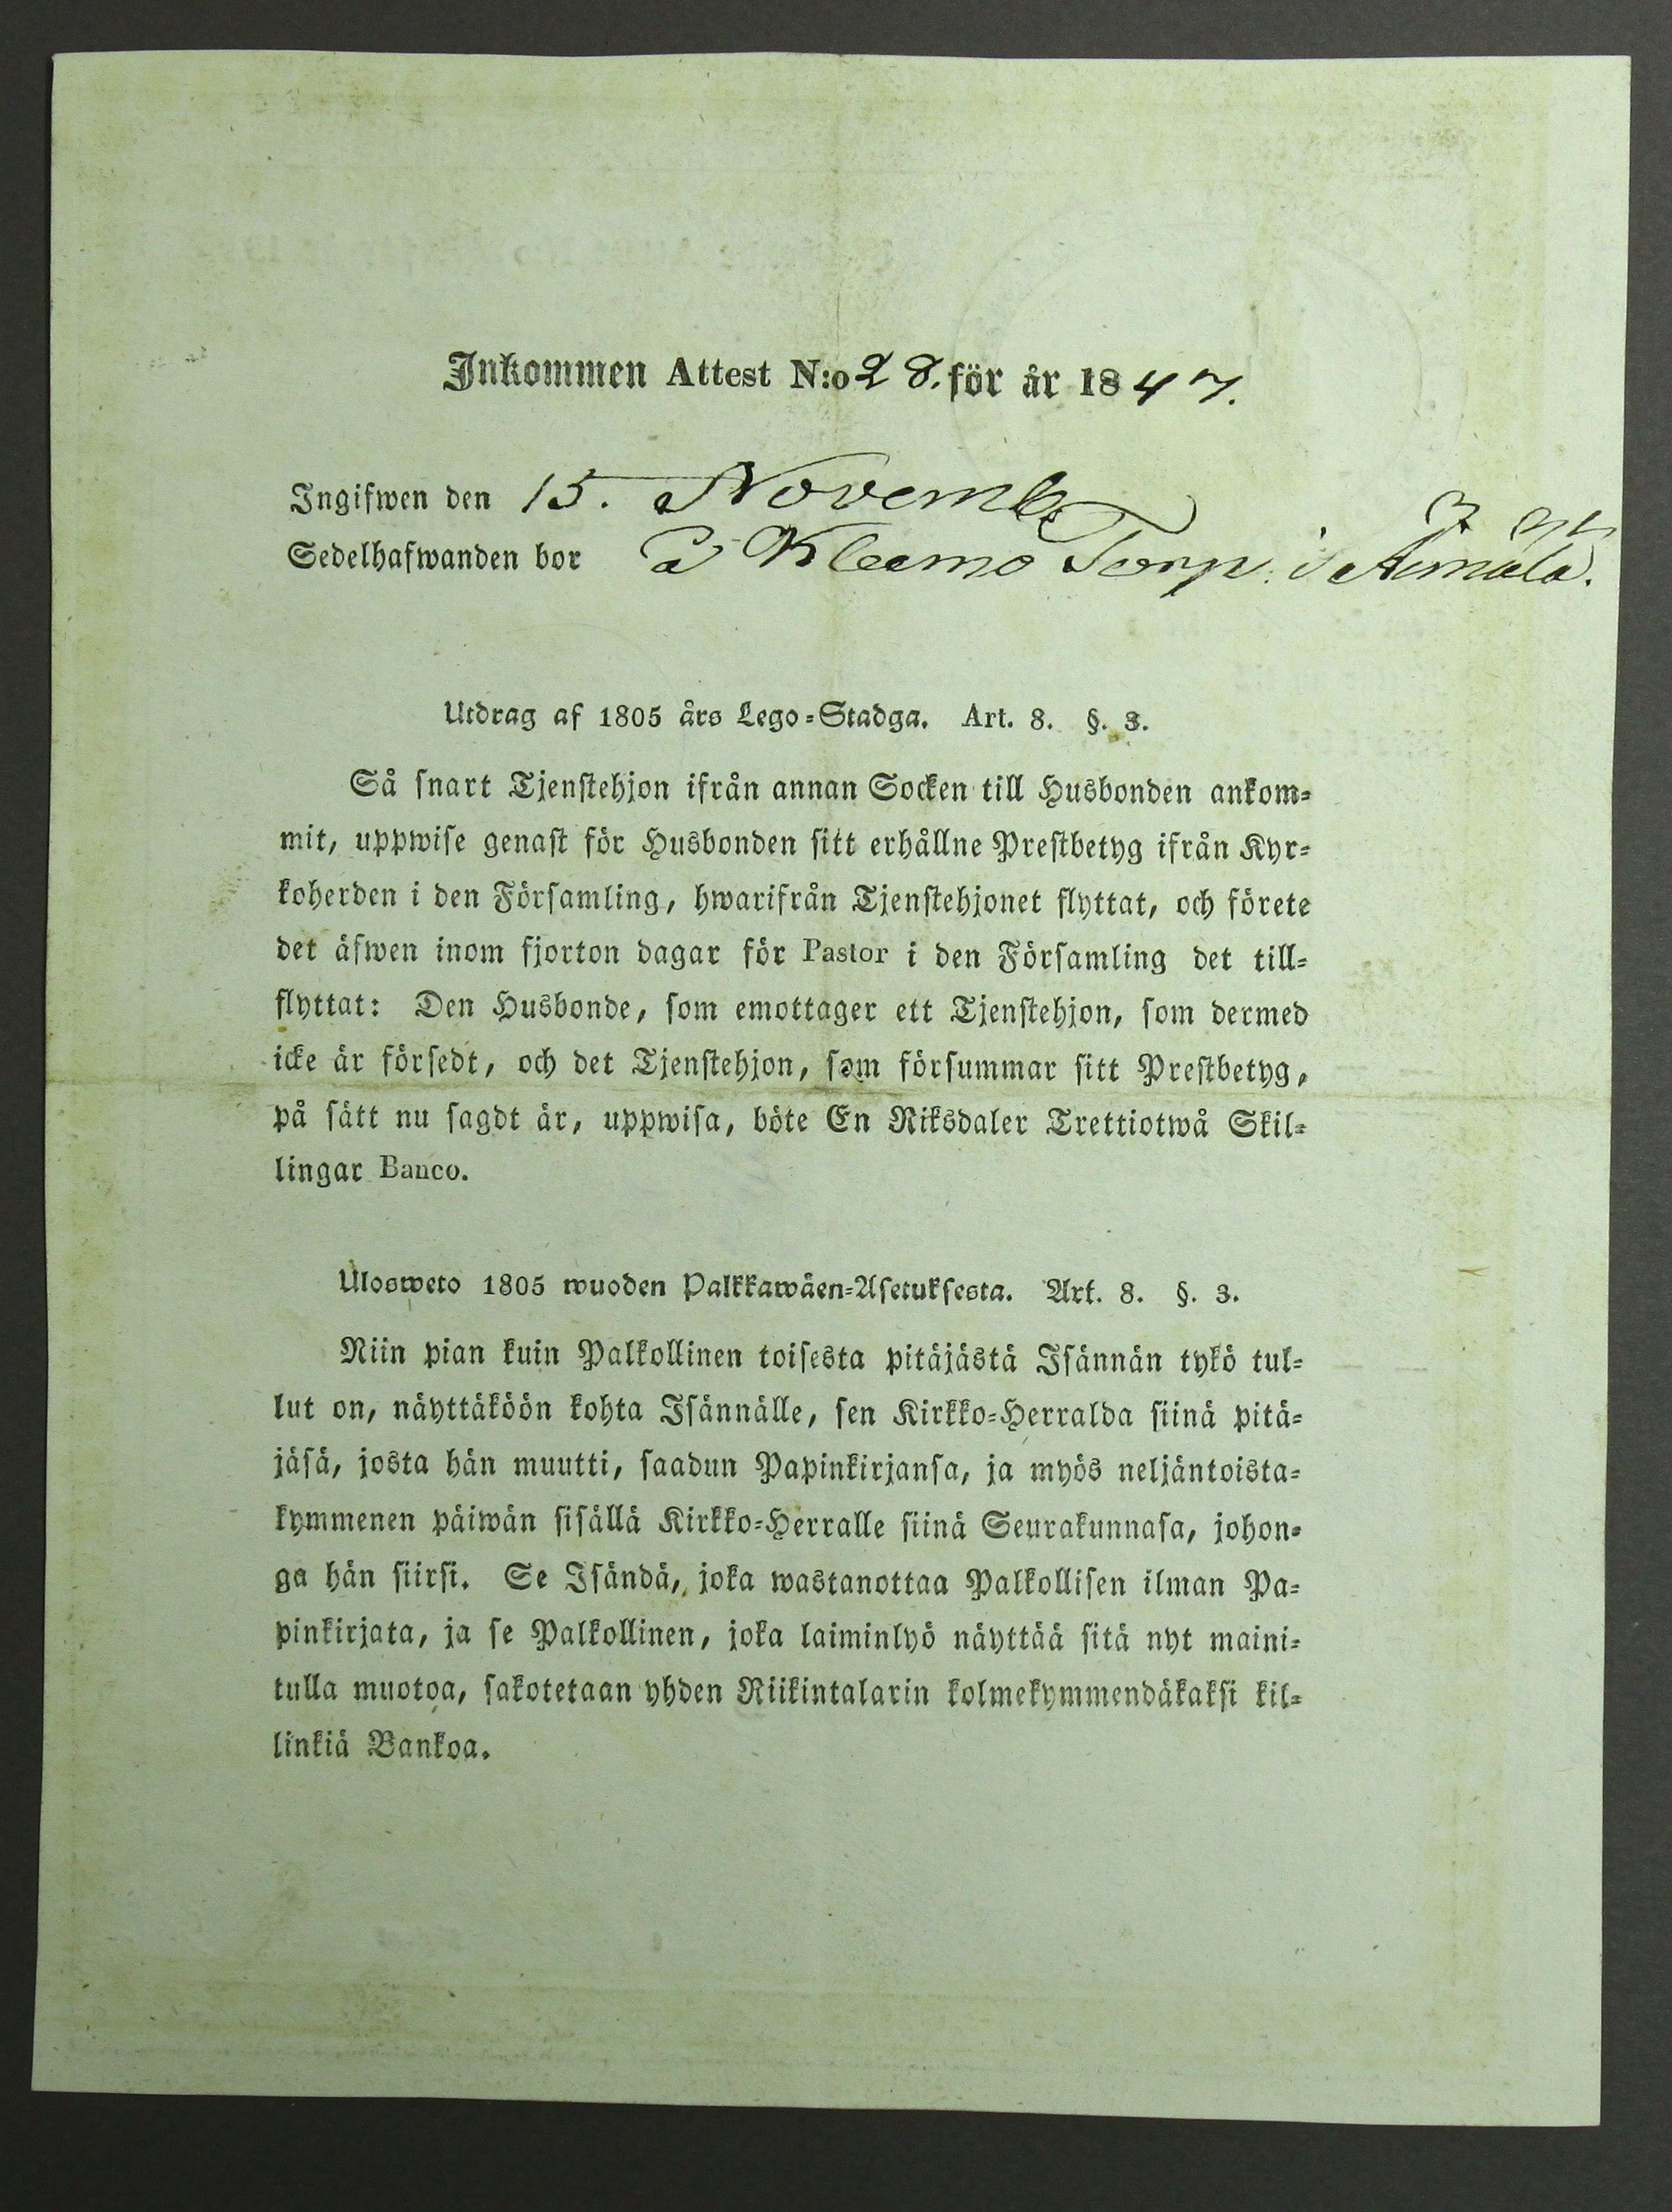 Inkommen Attest N:o 28. för år 1847.
Ingifwen den 15. Novemb
Sedelhafwanden bor på Kleemo Torp i Aimala.
Utdrag af 1805 års Lego-Stadga. Art. 8. §. 3.
Så snart Tjenstehjon ifrån annan Socken till Husbonden ankom-
mit, uppwise genast för Husbonden sitt erhållne Prestbetyg ifrån Kyr-
koherden i den Församling, hwarifrån Tjenstehjonet flyttat, och förete
det äfwen inom fjorton dagar för Pastor i den Församling det till-
flyttat: Den Husbonde, som emottager ett Tjenstehjon, som dermed
icke är försedt, och det Tjenstehjon, som försummar sitt Prestbetyg,
på sätt nu sagdt är, uppwisa, böte En Riksdaler Trettiotwå Skil-
lingar Banco.
Ulosweto 1805 wuoden Palkkawäen-Asetuksesta. Art. 8. §. 3.
Niin pian kuin Palkollinen toisesta pitäjästä Isännän tykö tul-
lut on, näyttäköön kohta Isännälle, sen Kirkko-Herralda siinä pitä-
jäsä, josta hän muutti, saadun Papinkirjansa, ja myös neljäntoista-
kymmenen päiwän sisällä Kirkko-Herralle siinä Seurakunnasa, johon-
ga hän siirsi. Se Isändä, joka wastanottaa Palkollisen ilman Pa-
pinkirjata, ja se Palkollinen, joka laiminlyö näyttää sitä nyt maini-
tulla muotoa, sakotetaan yhden Riikintalarin kolmekymmendäkaksi kil-
linkiä Bankoa.